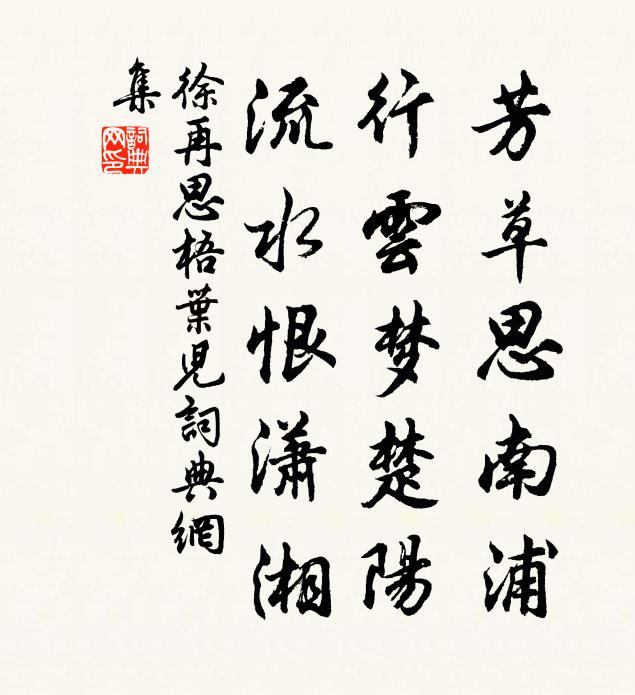 芳草思南浦
行雲梦楚陽
流水恨瀟湘
徐再思梧葉児詞典網
集
詞典
网印